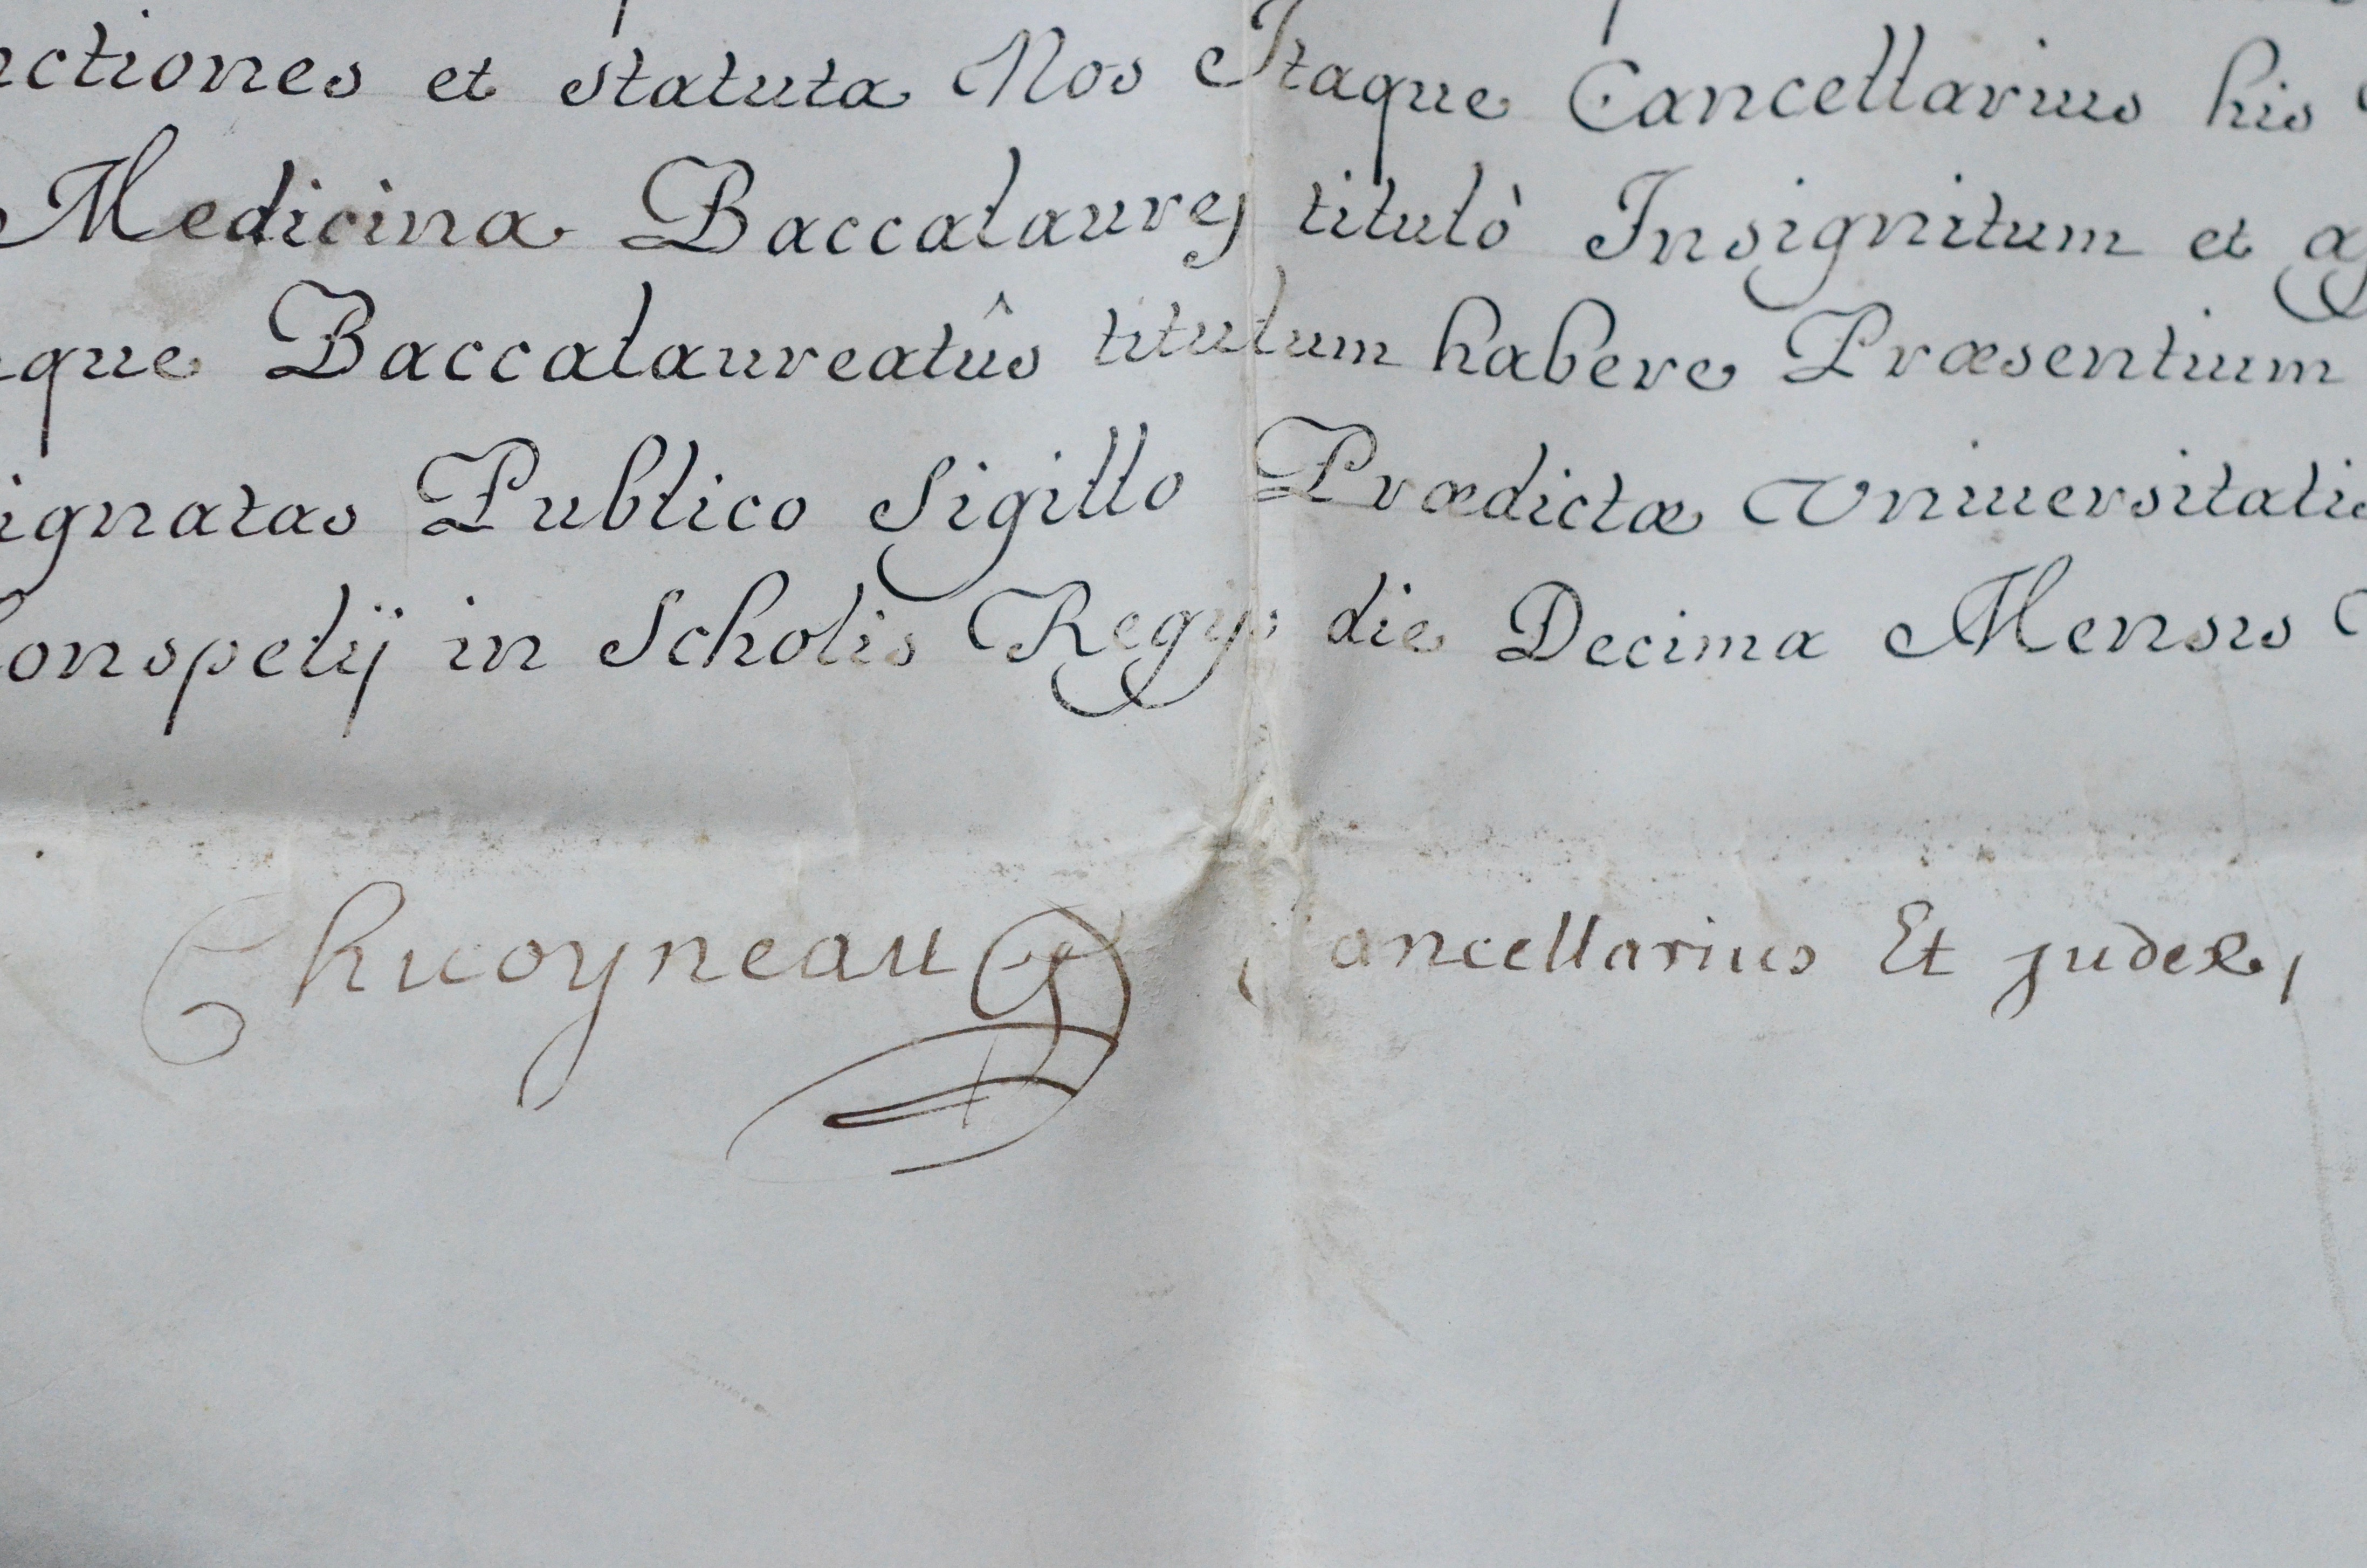 nctiones et statuta Nos Itaque Cancellarius his
Medicina Baccalaurej titulò Insignitum et
que Baccalaureatûs titulum habere Præsentium
ignatas Publico Sigillo Prædictæ Vniuersitatis
onspelij in Scholis Regijs die Decima Mensis
Chicoyneau Cancellarius Et judex,